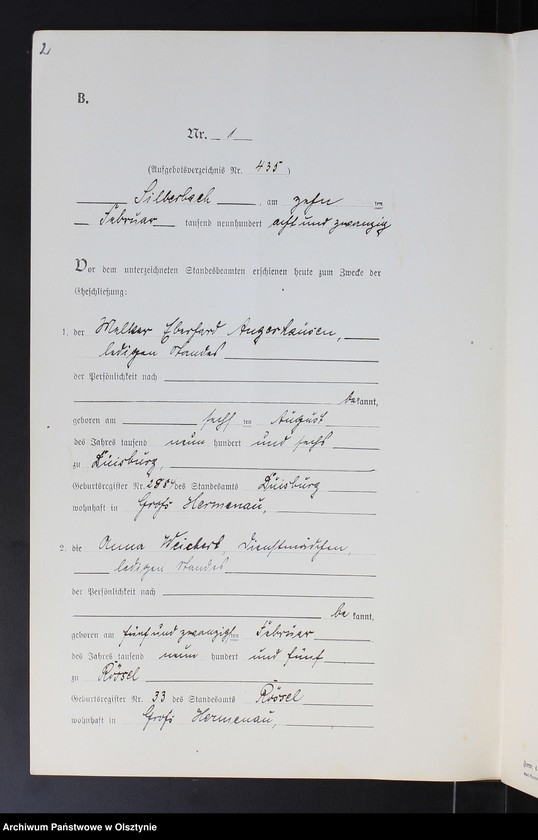 2
B.
Nr. 1
(Aufgebotsverzeichnis Nr. 435)
Silberbach, am zehn ten
Februar tausend neunhundert acht und zwanzig
Vor dem unterzeichneten Standesbeamten erschienen heute zum Zwecke der
Eheschließung:
1. der Melker Eberhard Angerhausen,
ledigen Standes
der Persönlichkeit nach
bekannt,
geboren am sechsten August
des Jahres tausend neun hundert und sechs
zu Duisburg,
Geburtsregister Nr. 2884 des Standesamts Duisburg
wohnhaft in Groß Hermenau,
2. die Anna Weichert, Dienstmädchen,
ledigen Standes
der Persönlichkeit nach
be kannt,
geboren am fünf und zwanzigsten Februar
des Jahres tausend neun hundert und fünf
zu Rössel
Geburtsregister Nr. 33 des Standesamts Rössel
wohnhaft in Groß Hermenau,
Archiwum Państwowe w Olsztynie